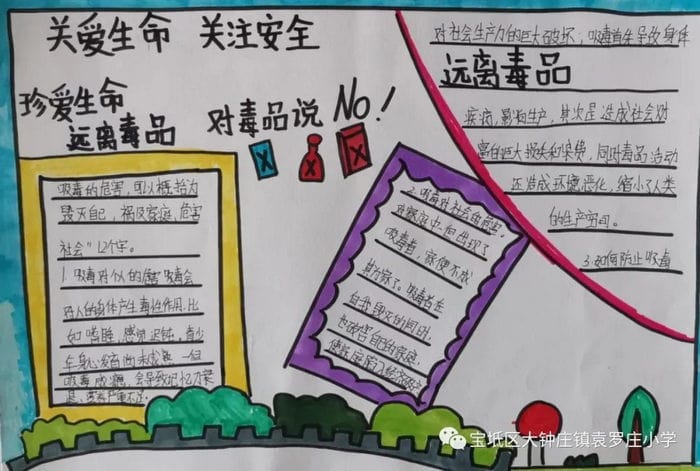 关爱生命 关注安全
珍爱生命
远离毒品
对毒品说 No!
吸毒的危害,可以概括为
毁灭自己,祸及家庭,危害
社会"12个字。
1.吸毒对
危害 吸毒会
对人的身体产生毒性作用,比
如嗜睡,感觉迟钝,
年身心发育
一但
吸毒成瘾,会导致记忆力
2.吸毒对社会的危害.
对家庭中一旦出现了
吸毒者,家便不成
其为家了。吸毒者在
自我毁灭的同时,
也破害自己的家庭,
使家庭陷入经济
对社会生产力的巨大破坏;吸毒首先导致身体
远离毒品
疾病,影响生产,其次是造成社会财
富的巨大损失和浪费,同时毒品活动
还造成环境恶化,缩小了人类
的生产空间。
3.如何防止吸毒
宝坻区大钟庄镇袁罗庄小学